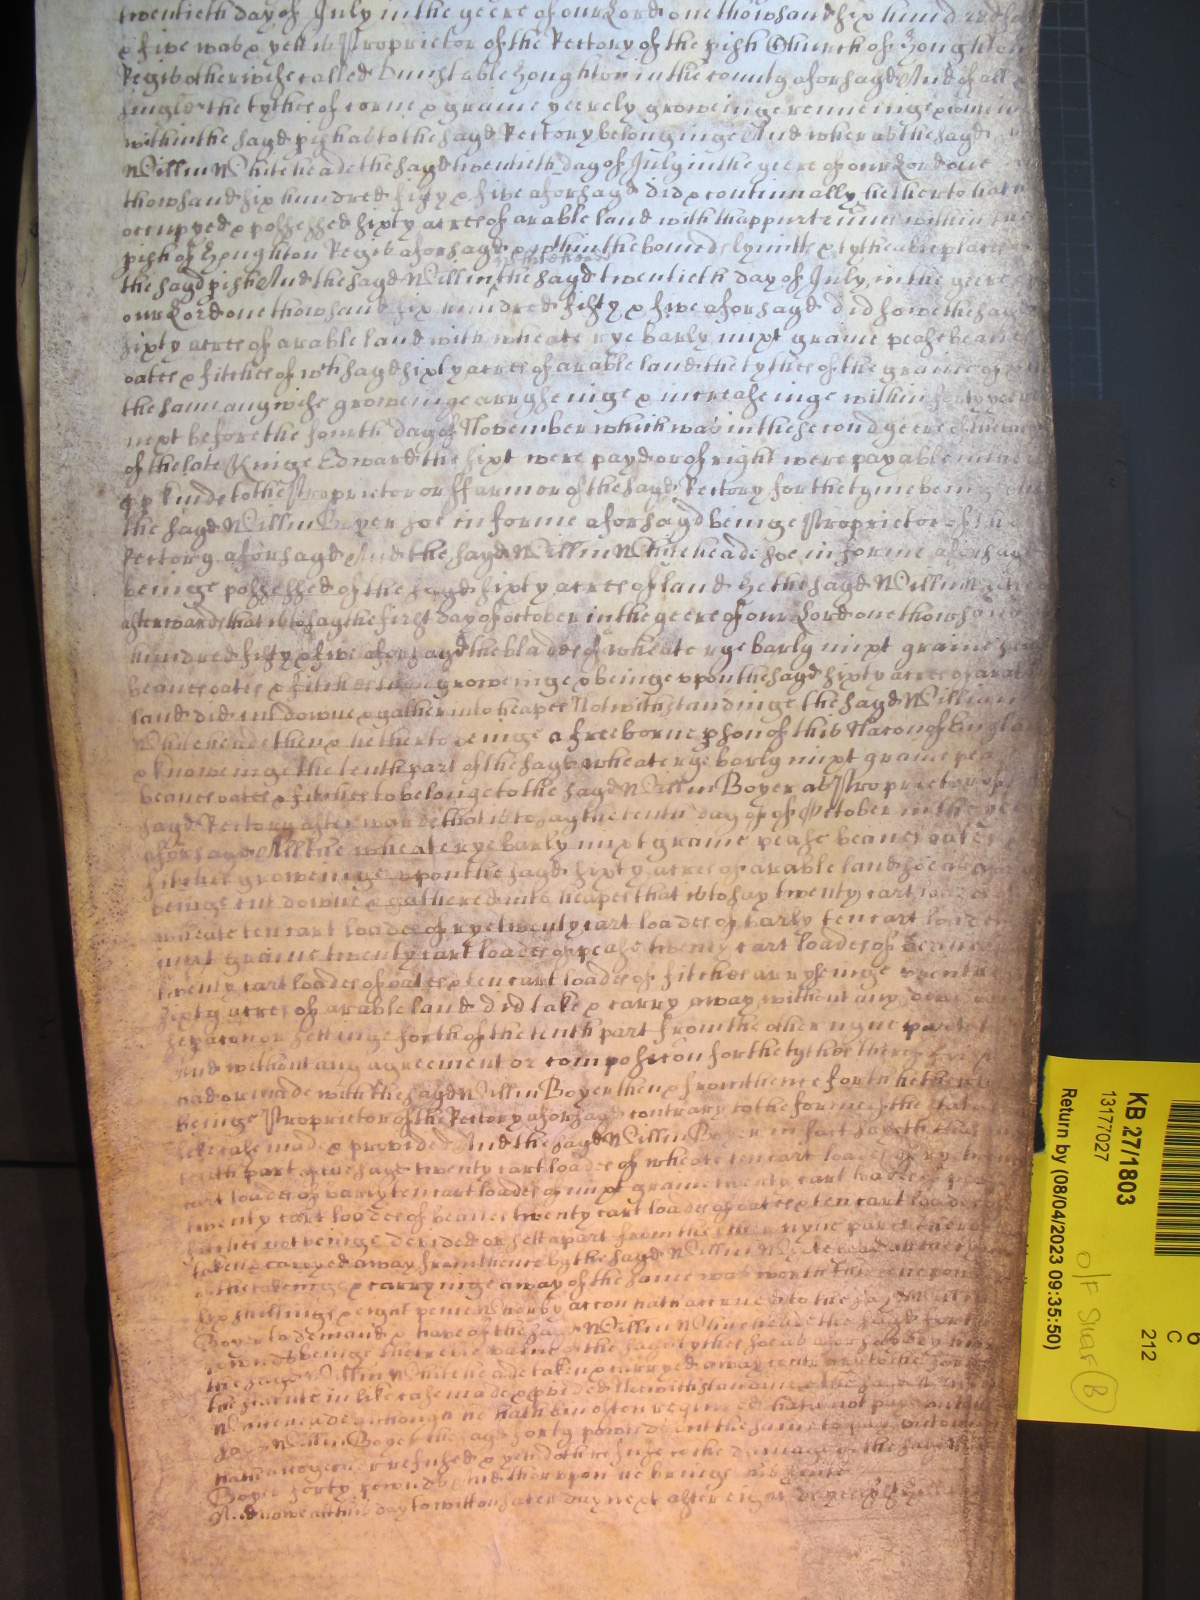 twentieth day of July in the yeere of our Lord one thowsand six hundred
& five was & yett is Proprietor of the Rectory of the pish Church of Houghton
Regis otherwise called Dunstable Houghton in the county aforsayd And of all &
singler the tythes of corne & graine yeerely groweinge renneinge & comeinge
within the sayd pish as to the sayd Rectory belonginge And wheras the sayd
Willm Whiteheade the sayd twentieth day of July in the yeere of our Lord one
thowsand six hundred fifty & five aforsayd did & continually hetherto hath
occupyed & possessed sixty acres of arable land with thappurtennces within the
pish of Houghton Regis aforsayd & within the bounds lymitts & tytheable places
the sayd pish And the sayd Willm Whiteheade the sayd twentieth day of July in the yeere
our Lord one thowsand six hundred fifty & five aforsayd did sowe the sayd
sixty acres of arable land with wheate rye barly mixt graine pease beanes
oates & fitches of wch sayd sixty acres of arable land the tythes of the graine
the same any wise groweinge arrysseinge & increaseinge within forty yeeres
next before the fourth day of November which was in the second yeere of the
of the late Kinge Edward the sixt were payd or of right were payable in the
kinde to the Proprietor or ffarmor of the sayd Rectory for the tyme beinge And
the sayd Willm Boyer soe in forme aforsayd beinge Proprietor of the
Rectory aforsayd And the sayd Willm Whiteheade soe in forme aforsayd
beinge possessed of the sayd sixty acres of land He the sayd Willm
afterwards that is to say the first day of October in the yeere of our Lord one thowsand
hundred fifty & five aforsayd the blades of wheate rye barly mixt graine
beanes oates & fitches then groweinge & beinge uppon the sayd sixty acres of arable
land did cutt downe & gather into heapes Notwithstandinge the sayd William
Whiteheade then & hetherto beinge a freeborne pson of this Nacon of England
& knoweinge the tenth part of the sayd wheate rye barly mixt graine pease
beanes oates & fitches to belonge to the sayd Willm Boyer as Proprietor of
sayd Rectory afterwards that is to say the tenth day of October in the yeere
aforsayd All the wheate rye barly mixt graine pease beanes oates
fitches groweinge uppon the sayd sixty acres of arable land soe as aforsayd
beinge cutt downe & gathered into heapes that is to say twenty cart loades of
wheate ten cart loades of rye twenty cart loades of barly ten cart loades of
mixt graine twenty cart loades of pease twenty cart loades of beanes
twenty cart loades of oates & ten cart loades of fitches arrysseinge
sixty acres of arable land did take & carry away without any
separacon or settinge forth of the tenth part from the other nyne partes
And without any agreement or composicon for the tythes therof
had or made with the sayd Willm Boyer then & from thence forth hetherto
beinge Proprietor of the Rectory aforsayd contrary to the forme of the
like case made & provided And the sayd Willm Boyer in fact sayeth that
tenth part of the sayd twenty cart loades of wheate ten cart loades of rye twenty
cart loades of barly ten cart loades of mixt graine twenty cart loades of pease
twenty cart loades of beanes twenty cart loades of oates & ten cart loades
fitches not beinge devided or sett apart from the other nyne partes therof
taken & carryed away from thence by the sayd Willm Whiteheade
of the takeinge & carryinge away of the same was worth
six shillings & eight pence Wherby accon hath accrued to the sayd Willm
Boyer to demand & have of the sayd Willm Whiteheade the sayd forty
pownds beinge the treble value of the sayd tythes soe as aforsayd
the sayd Willm Whiteheade taken & carryed away contrary to the forme
the statute in like case made & pvided Notwithstandinge the sayd Willm
Whiteheade although he hath bin often required hath not payd
sayd Willm Boyer the sayd forty pownds but the same to pay
hath & refused & yett doth refuse to the damage of the sayd
Boyer forty pownds And therupon he brings his suite
And nowe att this day to witt on Saterday next after eight dayes
KB 27/1803
13177027
Return by (08/04/2023 09:35:50)
C
212
O/F Shelf B